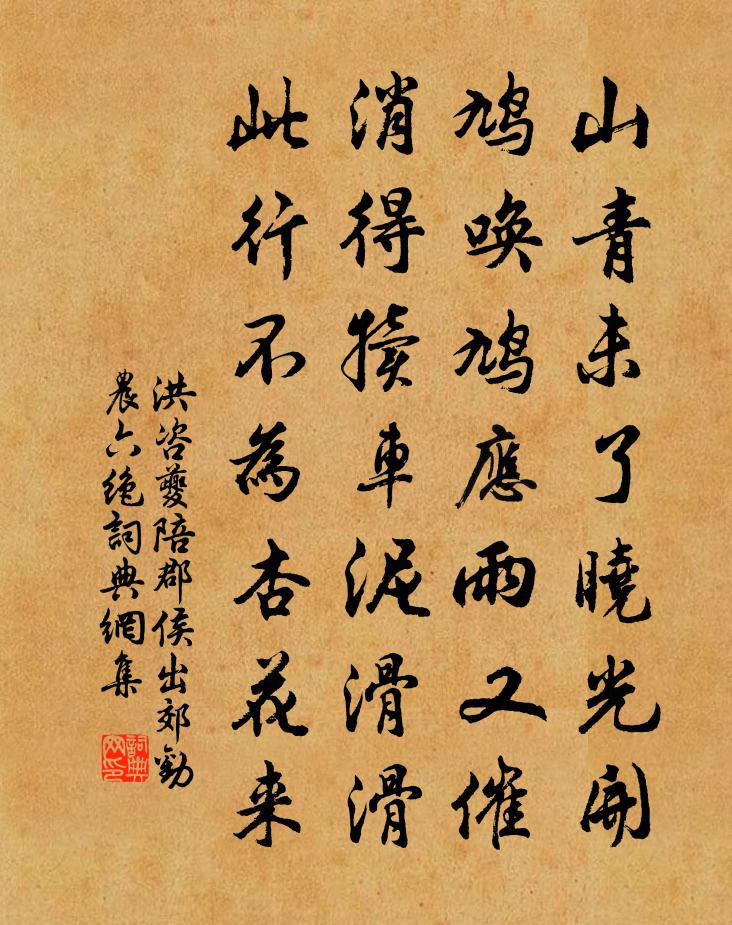 山青未了曉光開
鳩喚鳩應雨又催
消得犢車泥滑滑
此行不為杏花来
洪咨夔陪郡侯出郊勸
農六絶詞典網集
詞典
网印